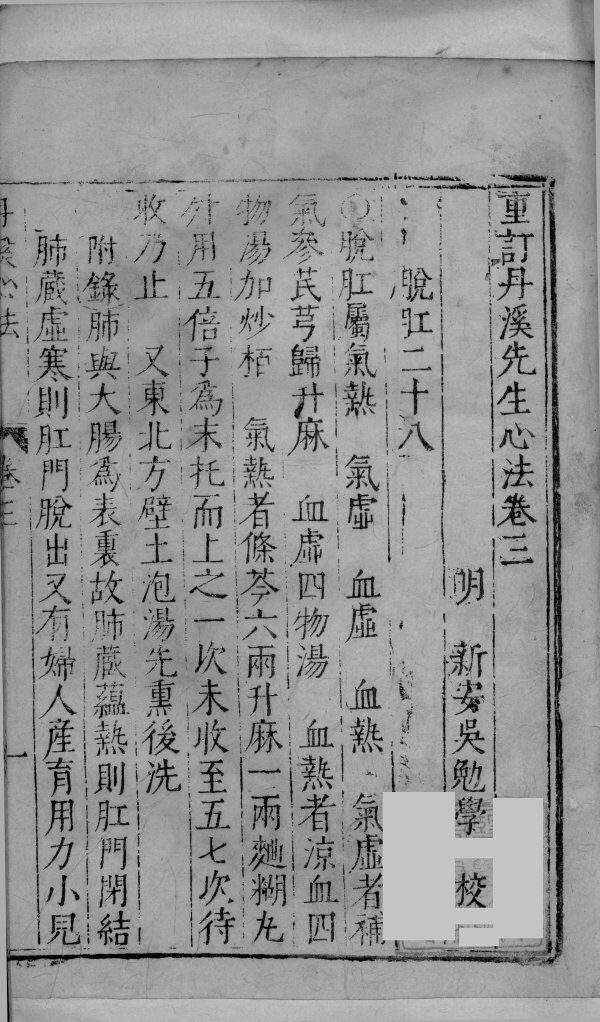 重訂丹溪先生心法卷三
明 新安吳勉學 校
脫肛二十八
脫肛屬氣熱 氣虛 血虛 血熱 氣虛者補
氣參芪芎歸升麻 血虛四物湯 血熱者涼血四
物湯加炒栢 氣熱者條芩六兩升麻一兩麯糊丸
外用五倍子為末托而上之一次未收至五七次待
收乃止 又東北方壁土泡湯先熏後洗
附錄肺與大腸為表裏故肺蔵蘊熱則肛門閉結
肺蔵虛寒則肛門脫出又有婦人産育用力小兒
丹溪心法 卷三 一